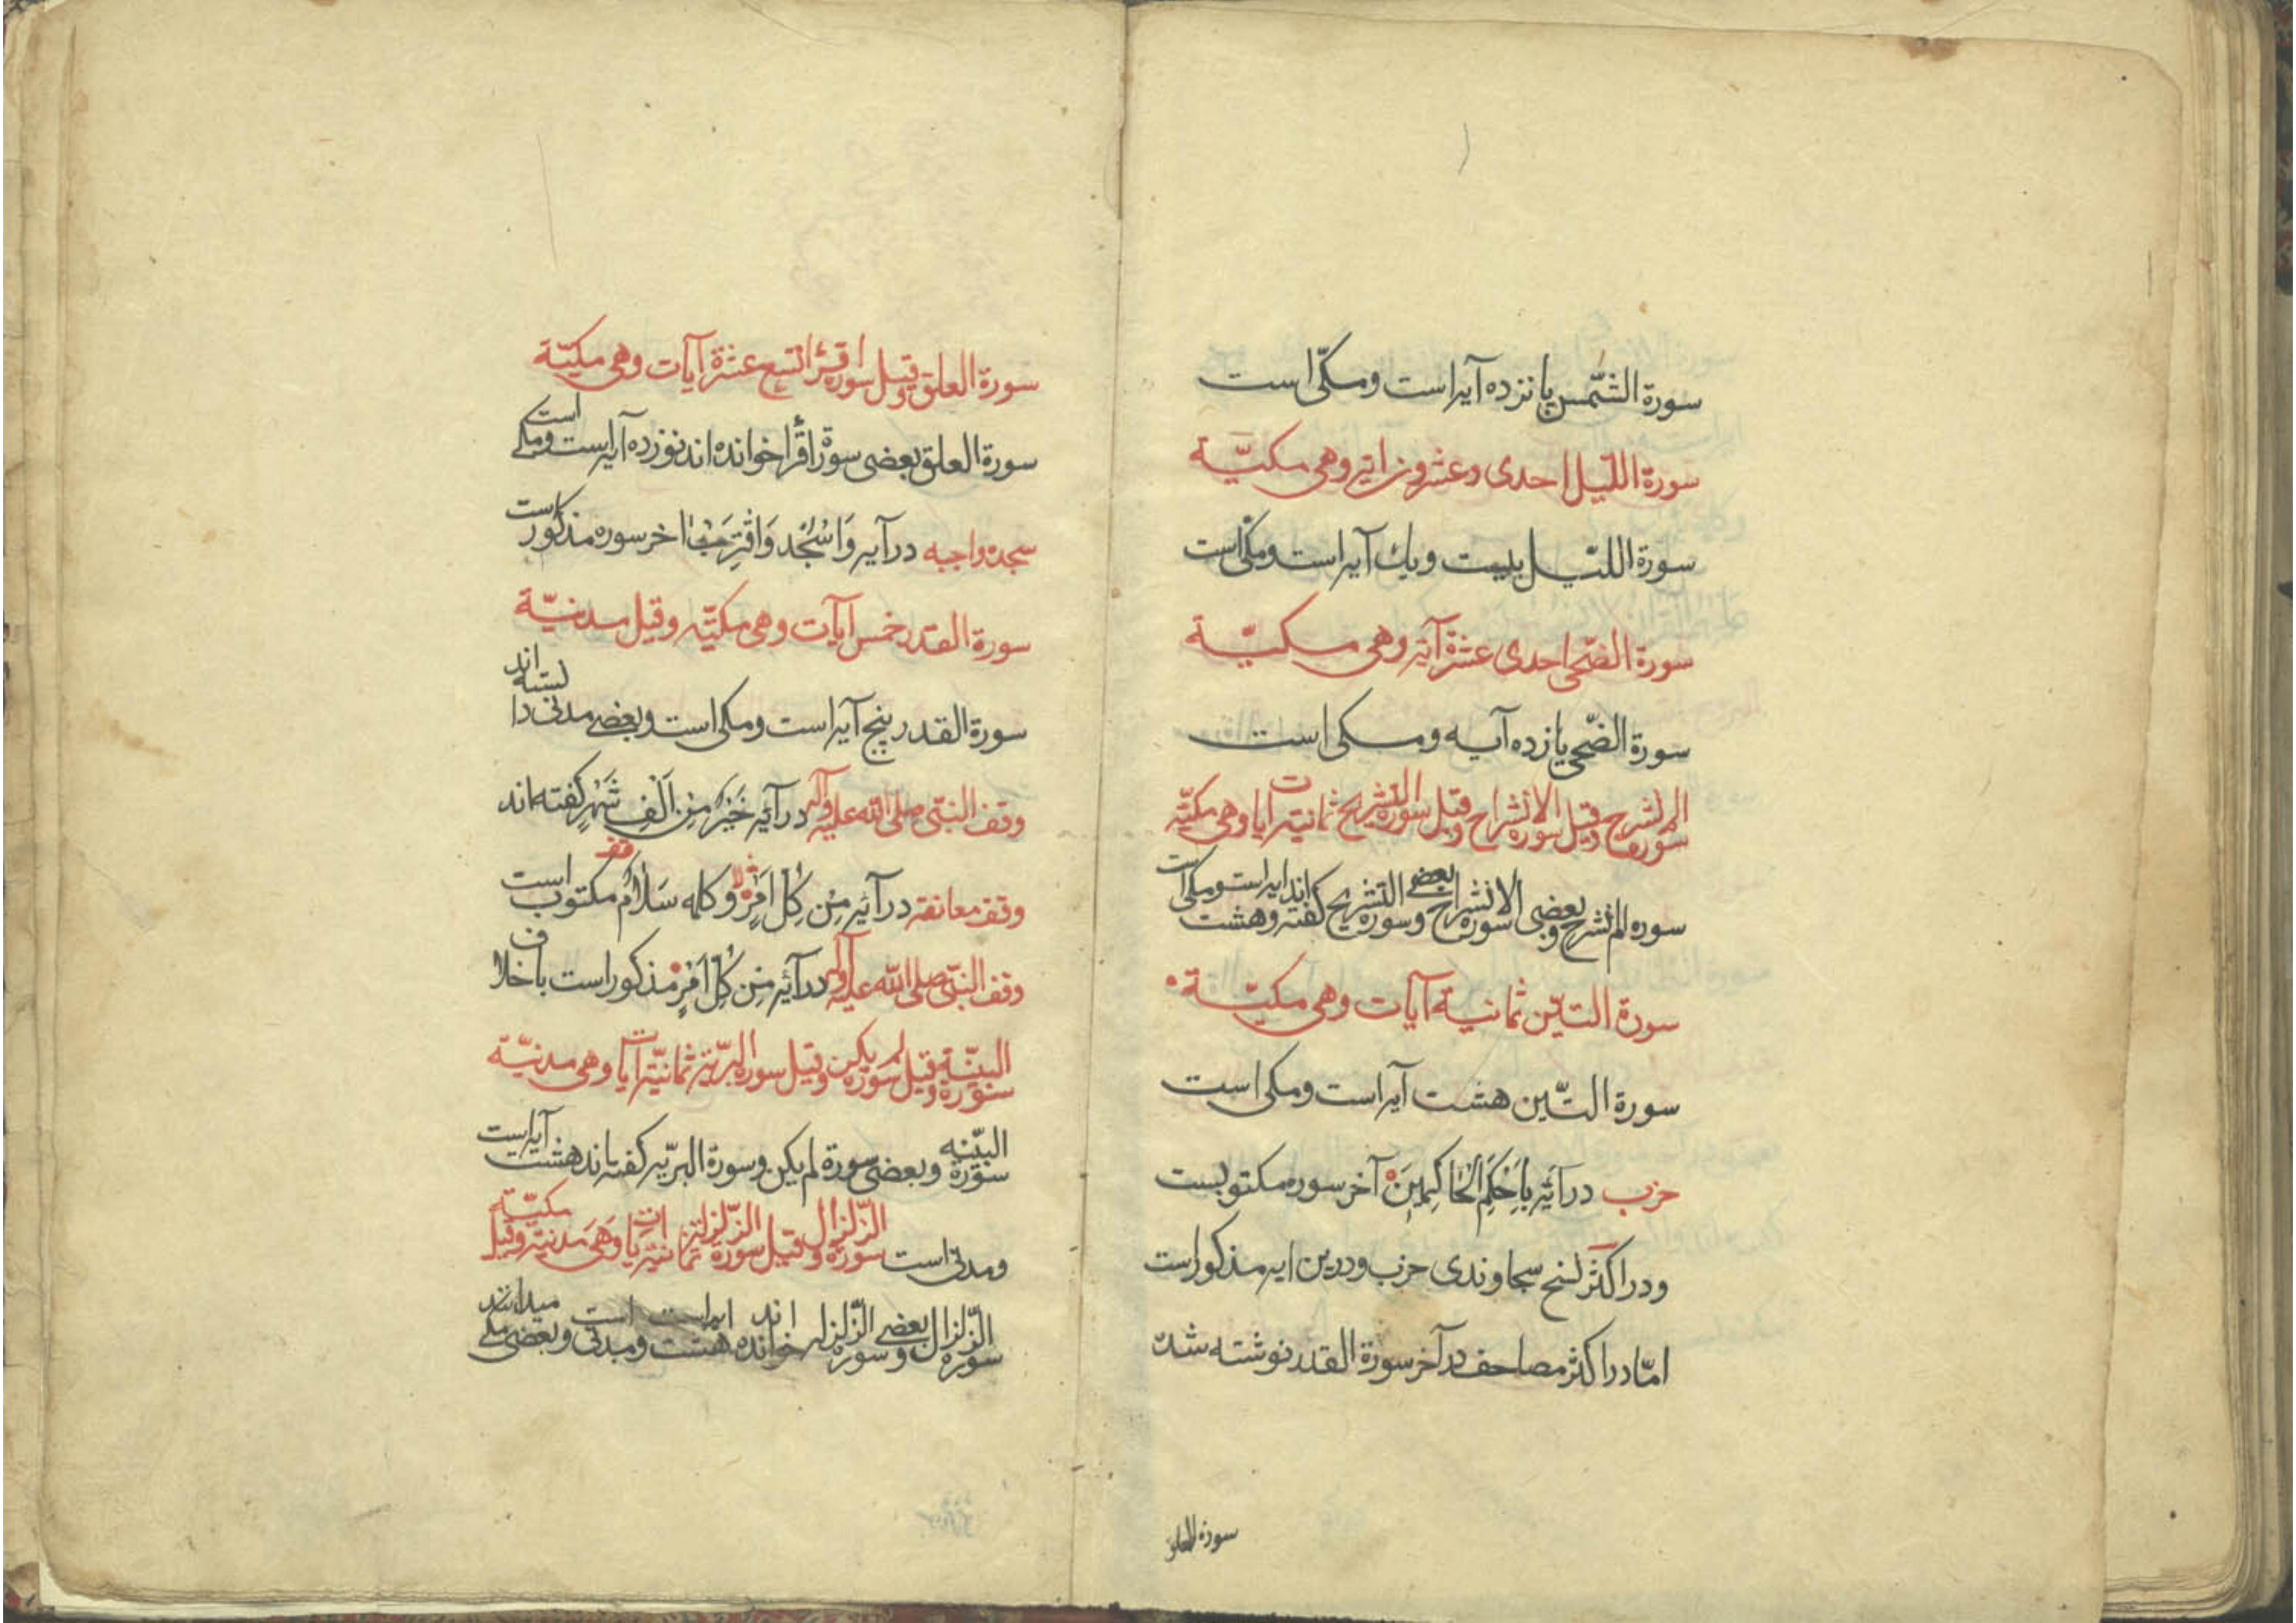 سورة الشّمس پانزده آیه است ومکّی است
سورة اللّیل احدی وعشرون اٰیة وهی مکیّة
سورة اللیّل بیست ویك آیه است ومکی است
سورة الضّحی احدی عشرة آیة وهی مکیّة
سورة الضّحی یازده آیه ومکی است
سورة الم نشرح وقیل سورة الانشراح وقیل سورة التشریح ثمانیة ایات وهی مکیّة
سوره الم نشرح وبعضی سورة الانشراح وبعضی سورة التشریح کفته اند وهشت ایه است ومکی است
سورة التین ثمانیة آیات وهی مکیّة
سورة التّین هشت آیه است ومکی است
حزب در آئیه بِاَحْکَمِ الْحٰاکِمِینَ آخر سوره مکتوبست
ودر اکثر نسخ سجاوندی حزب ودرین ایه مذکور است
امّا در اکثر مصاحف در آخر سورة القدر نوشته شده
سورة العلق
سورة العلق وقیل سورة اقرأ تسع عشرة آیات وهی مکیّة
سورة العلق بعضی سورة اقرأ خوانده اند نوزده آیه است ومکی است
سجده واجبه در آیه وَاسْجُد وَاقْتَرِب اخر سوره مذکور است
سورة القدر خمس آیات وهی مکیّه وقیل مدنیّة
سورة القدر پنج آیه است ومکی است وبعضی مدنی دانسته اند
وقف النبّی صلی الله علیه وآله در آئیه خَیْرٌ مِنْ اَلْفِ شَهْرٍ کفته اند
وقف معانقه در آئیه مِنْ کُلِّ اَمْرٍ لا وکلمه سَلٰامٌ قف مکتوب است
وقف النبّی صلی الله علیه وآله در آئیه مِنْ کُلِّ اَمْرٍ مذکور است باخلاف
سورة البیّنة وقیل سورة لم یکن وقیل سورة البریّة ثمانیّة آیات وهی مدنیّة
سورة البیّنه وبعضی سورة لم یکن وسورة البریّه کفته اند هشت آیه است
ومدنی است سورة الزّلزال وقیل سورة الزّلزلة ثمانیة ایات وَهیَ مدنیّة وقیل مکیّة
سورة الزّلزال وبعضی سوره الزّلزله خوانده اند هشت ایه است ومدنی است وبعضی مکی میدانند